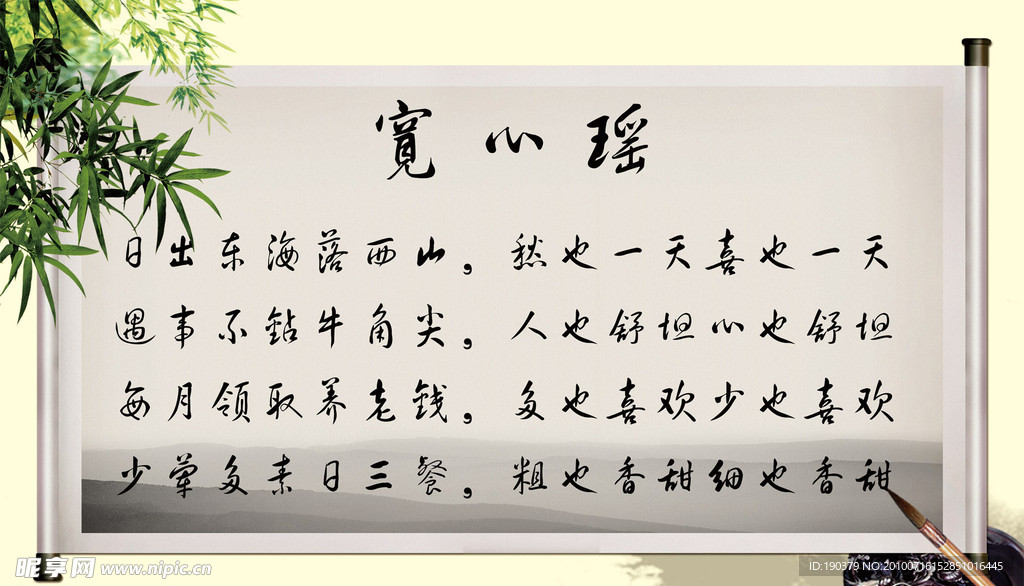 寬心瑶
日出东海落西山,愁也一天喜也一天
遇事不鉆牛角尖,人也舒坦心也舒坦
每月领取养老錢,多也喜欢少也喜欢
少荤多素日三餐,粗也香甜细也香甜
昵享网 www.nipic.cn
ID:190379 NO:20100716152851016445